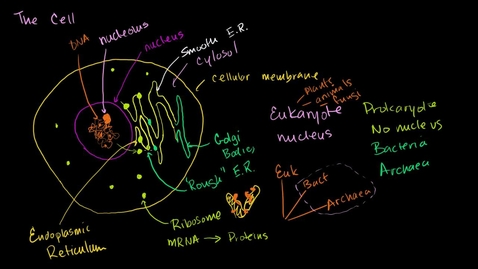 The Cell
DNA
nucleolus
nucleus
Smooth E.R.
cytosol
cellular membrane
plants
animals
fungi
Eukaryote
nucleus
Prokaryote
No nucleus
Bacteria
Archaea
Golgi
Bodies
"Rough" E.R.
Euk
Bact
Archaea
Ribosome
mRNA → Proteins
Endoplasmic
Reticulum